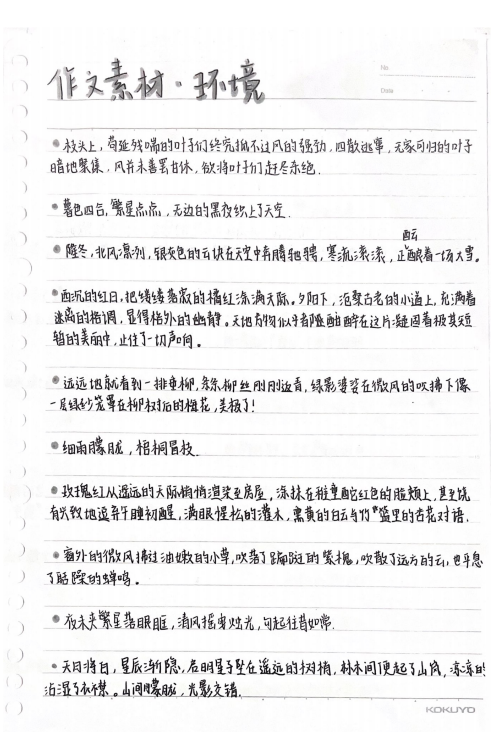 作文素材·环境
No.
Date
枝头上,苟延残喘的叶子们终究抵不过风的强劲,四散逃窜,无家可归的叶子
暗地聚集,风并未善罢甘休,欲将叶子们赶尽杀绝.
暮色四合,繁星点点,无边的黑夜织上了天空.
酝
隆冬,北风凛冽,银灰色的云块在天空中奔腾驰骋,寒流滚滚,正酿着一场大雪。
西沉的红日,把缕缕落寂的橘红涂满天际。夕阳下,
古老的小道上,充满着
迷离的格调,显得格外的幽静。天地万物似乎有
酣醉在这片凝固着极其短
暂的美丽中,止住了一切声响。
远远地就看到一排垂柳,条条柳丝刚刚返青,绿影婆娑在微风的吹拂下像
一层绿纱笼罩在柳树后的梅花,美极了!
细雨朦胧,梧桐冒枝.
玫瑰红从遥远的天际悄悄渲染至房屋,涂抹在稚童酡红色的脸颊上,甚至饶
有兴致地逗弄午睡初醒,满眼惺松的灌木,熏黄的白云与竹篮里的杏花对语.
窗外的微风拂过油嫩的小草,吹落了斑驳的紫槐,吹散了远方的云,也平息
了聒躁的蝉鸣。
夜未央繁星落眼眶,清风摇曳烛光,勾起往昔如常.
天日将白,星辰渐隐,启明星孑坠在遥远的树梢,林木间便起了山岚,凉凉的
沾湿了衣襟。山间朦胧,光影交错.
KOKUYO